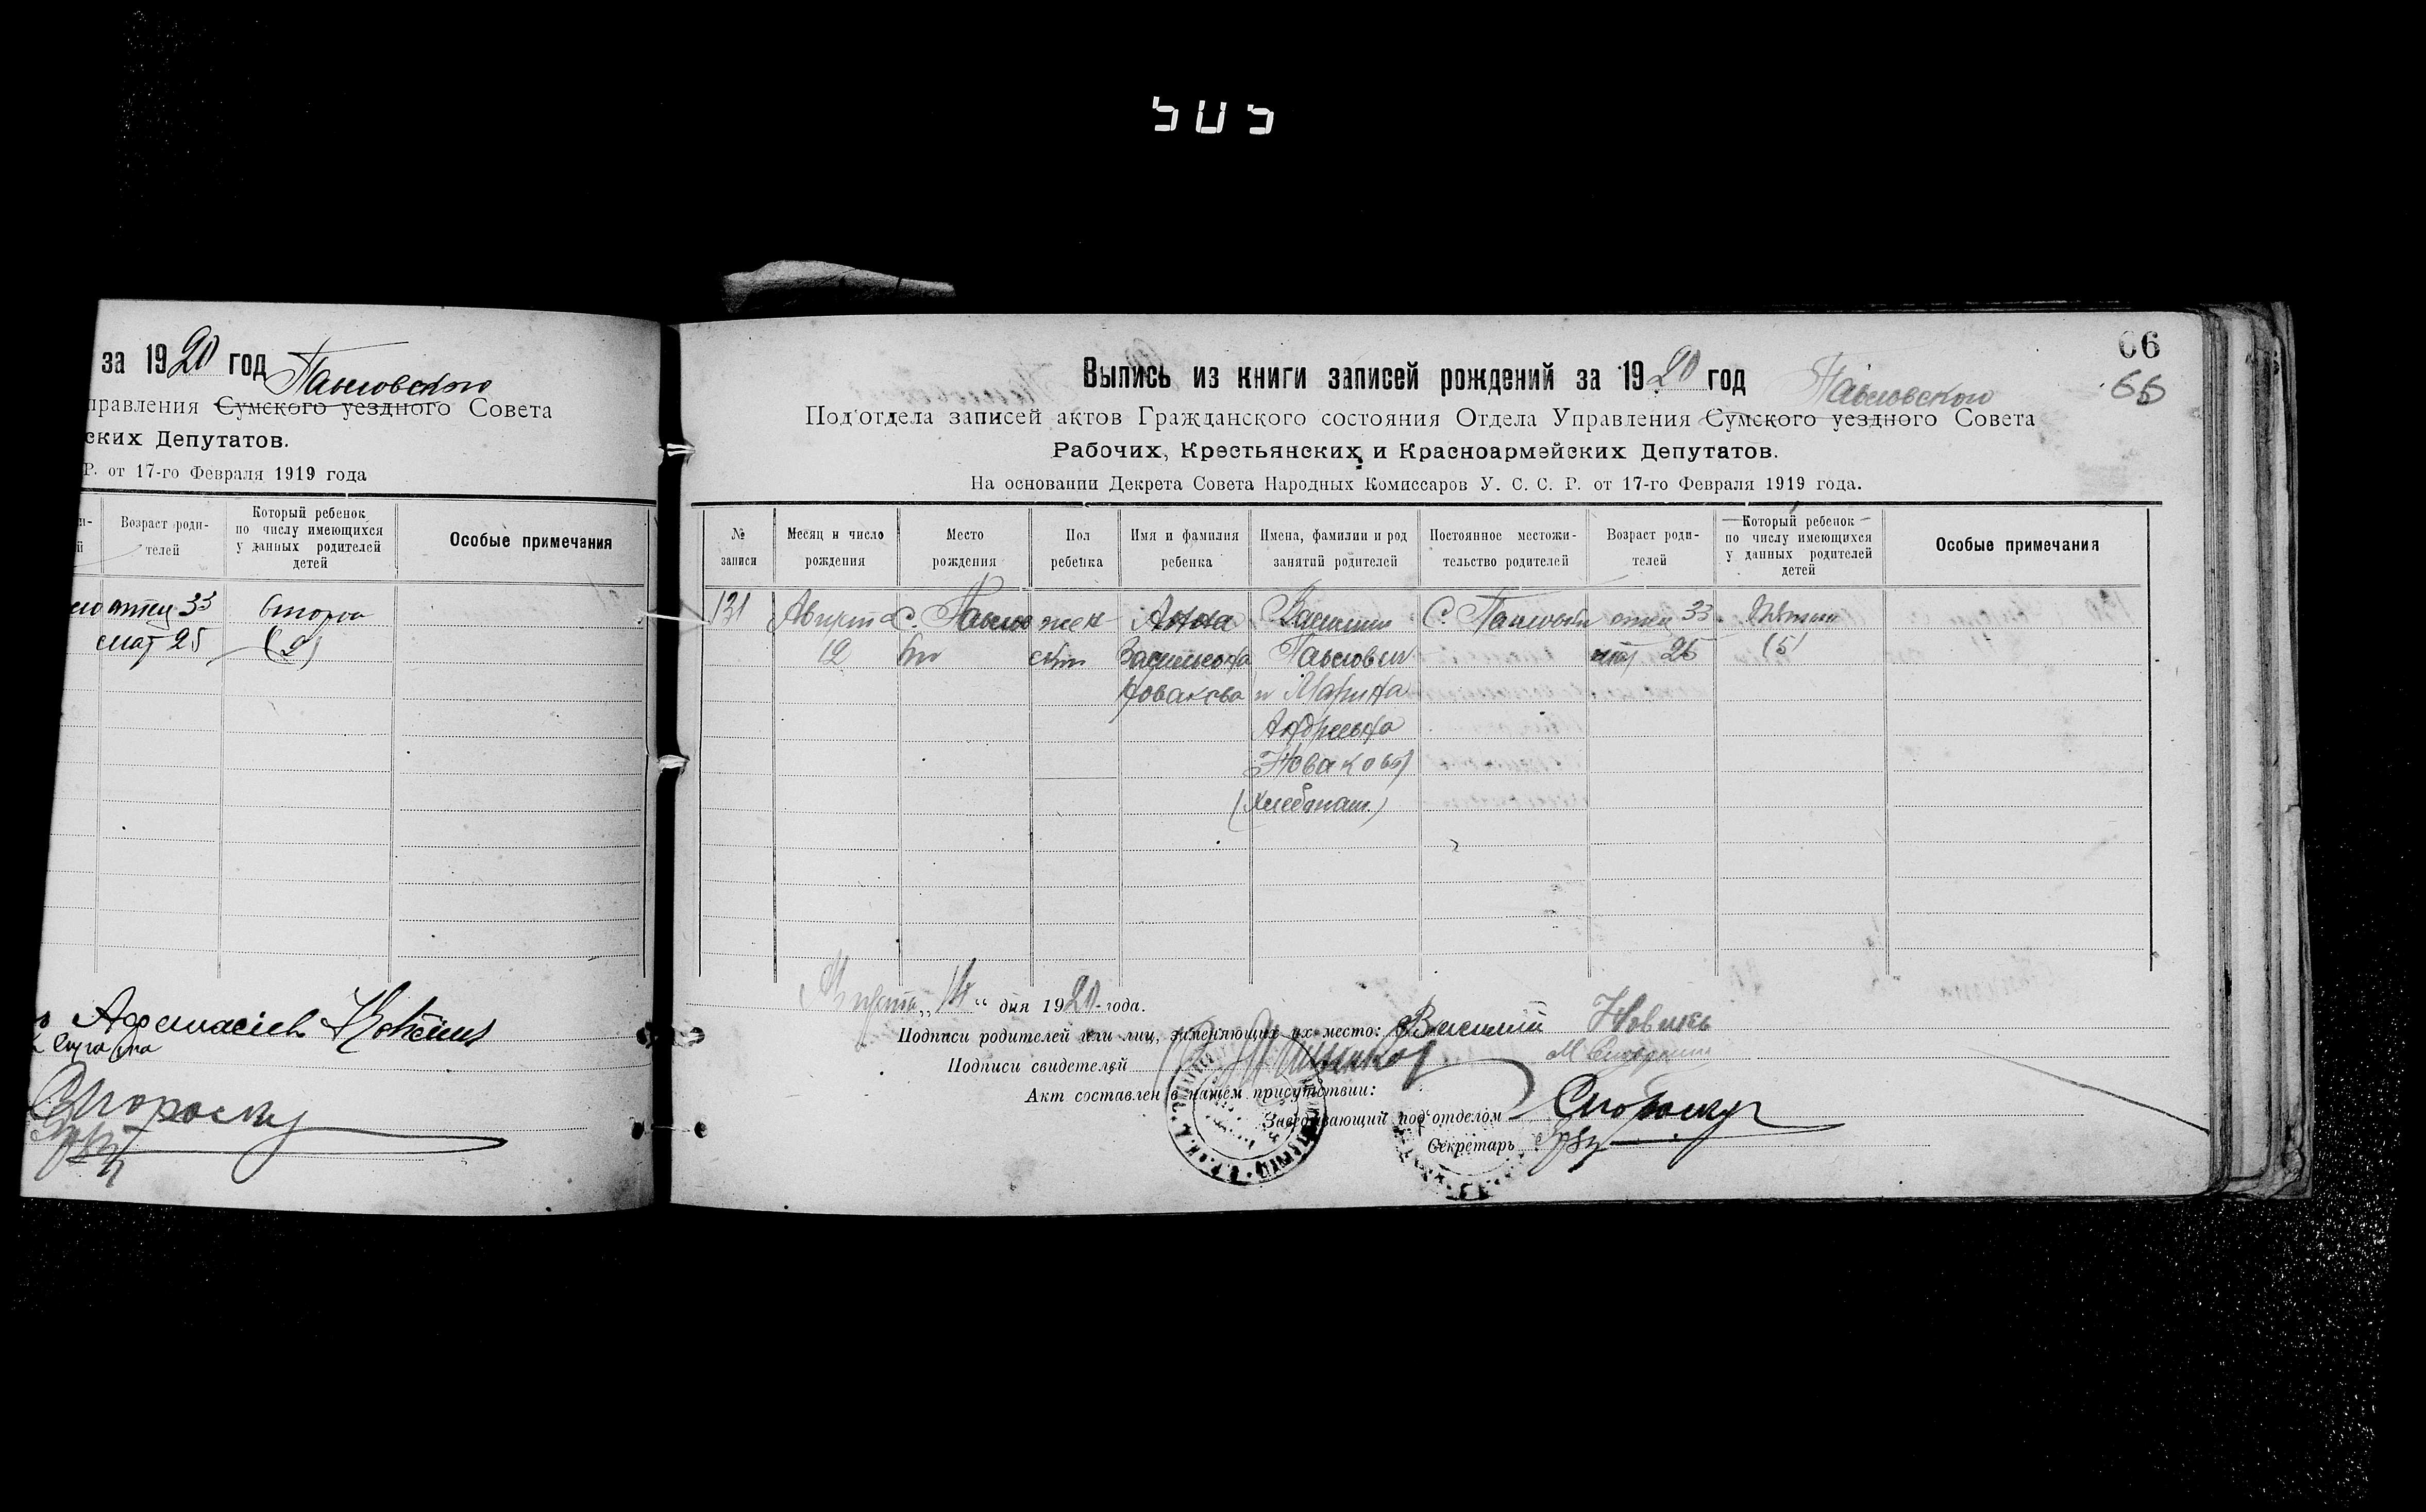 505
за 1920 год Павловского
правления Сумского уездного Совета
ских Депутатов.
Р. от 17-го Февраля 1919 года
Возраст роди-
телей
Который ребенок
по числу имеющихся
у данных родителей
детей
Особые примечания
отец 33
мат 25
второй
(2)
66
66
Выпись из книги записей рождений за 1920 год Павловского
Под'отдела записей актов Гражданского состояния Отдела Управления Сумского уездного Совета
Рабочих, Крестьянских и Красноармейских Депутатов.
На основании Декрета Совета Народных Комиссаров У. С. С. Р. от 17-го Февраля 1919 года.
№
записи
Месяц и число
рождения
Место
рождения
Пол
ребенка
Имя и фамилия
ребенка
Имена, фамилии и род
занятий родителей
Постоянное местожи-
тельство родителей
Возраст роди-
телей
Который ребенок
по числу имеющихся
у данных родителей
детей
Особые примечания
131
Августа
12
С. Павлов
ка
жен
ский
Анна
Васильевна
Новакова
Василий
Павлович
и Марина
Андреевна
Новаковы
(Хлебопаш.)
С. Павловка
отец 33
мат 25
Пятый
(5)
Августа „14“ дня 1920 года.
Подписи родителей или лиц, заменяющих их место: Василий Новиков
Подписи свидетелей
Акт составлен в нашем присутствии:
Заведывающий под'отделом
Секретарь